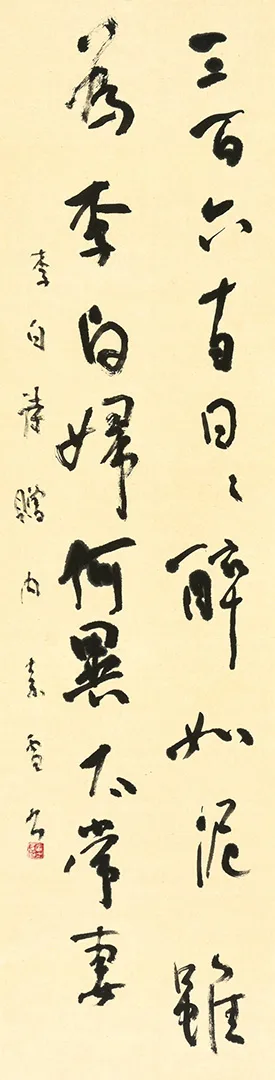 三百六十日日々醉如泥雖
為李白婦何異太常妻
李白詩贈内素雪